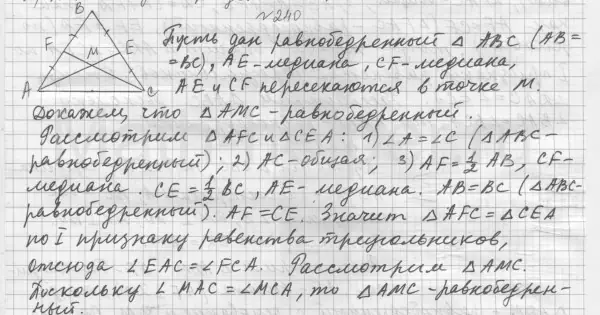 №240
B
F
E
M
A
C
Пусть дан равнобедренный △ ABC (AB=
=BC), AE-медиана, CF-медиана,
AE и CF пересекаются в точке M.
Докажем, что △AMC-равнобедренный.
Рассмотрим △AFC и △CEA: 1) ∠A=∠C (△ABC-
равнобедренный); 2) AC-общая; 3) AF=½ AB, CF-
медиана. CE=½ BC, AE-медиана. AB=BC (△ABC-
равнобедренный). AF=CE. Значит △AFC=△CEA
по I признаку равенства треугольников,
отсюда ∠EAC=∠FCA. Рассмотрим △AMC.
Поскольку ∠MAC=∠MCA, то △AMC-равнобедрен-
ный.